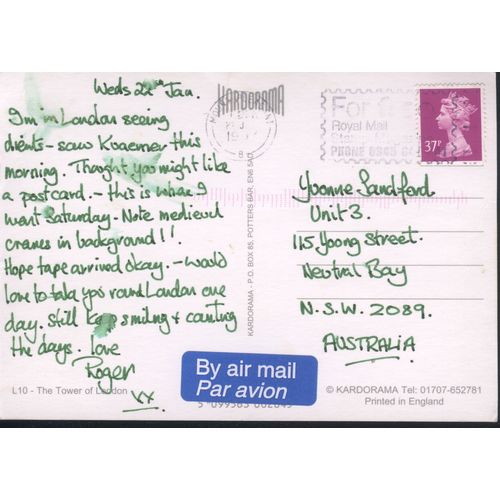 Weds 22nd Jan.
I'm in London seeing
clients - saw Kvaerner this
morning. Thought you might like
a postcard. - this is where I
went Saturday - Note medieval
cranes in background!!
Hope tape arrived okay. - would
love to take you round London one
day. Still keep smiling & counting
the days. Love
Roger
xx
L10 - The Tower of London
KARDORAMA
KARDORAMA - P.O. BOX 85, POTTERS BAR, EN6 5AD.
Royal Mail
37P
Yvonne Sandford
Unit 3.
115 Yoong Street.
Neutral Bay
N.S.W. 2089.
AUSTRALIA
By air mail
Par avion
© KARDORAMA Tel: 01707-652781
Printed in England